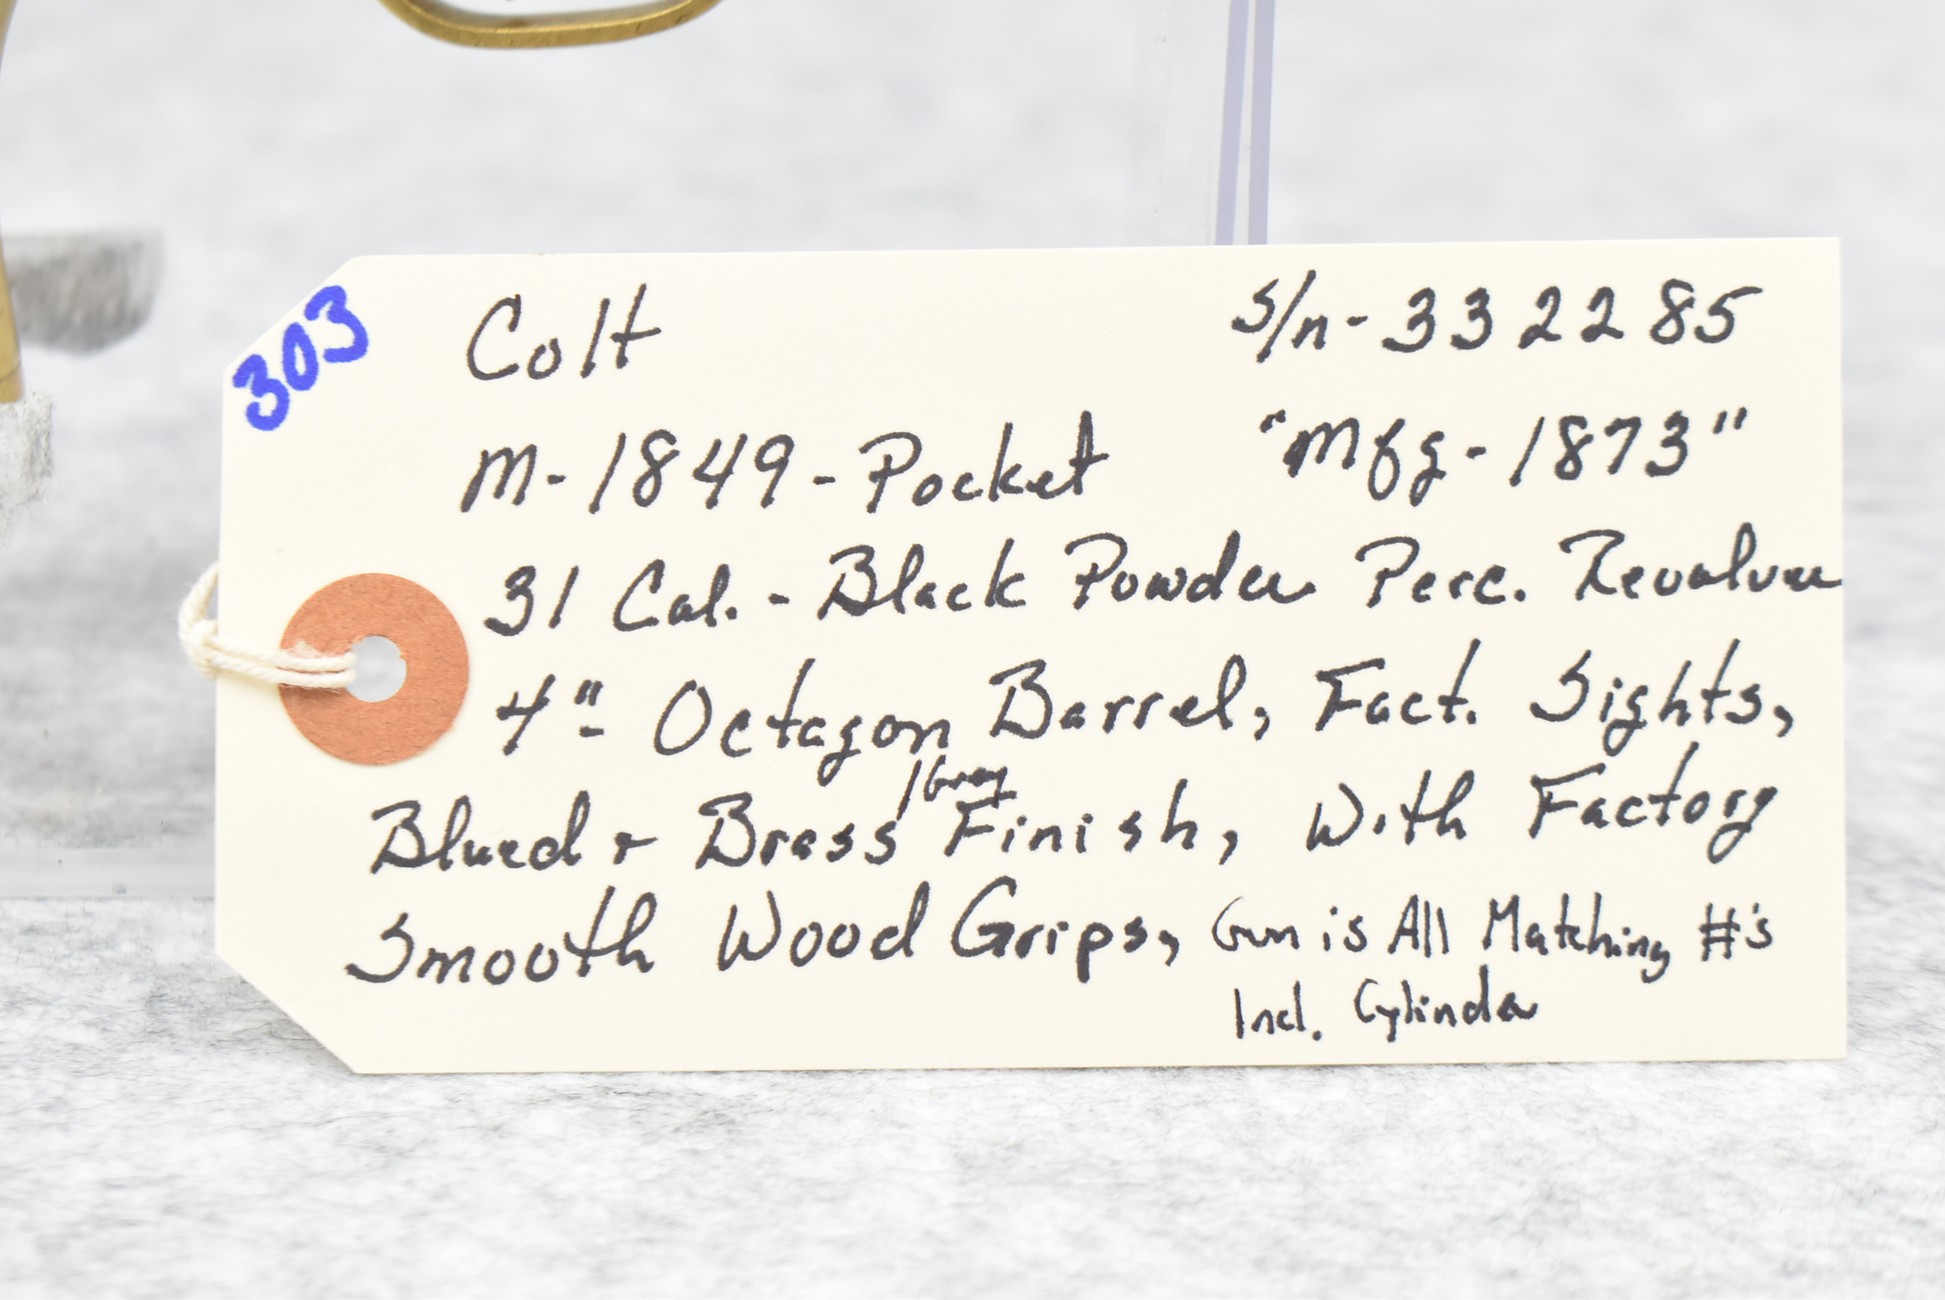 303
Colt S/n-332285
M-1849-Pocket "Mfg-1873"
31 Cal. - Black Powder Perc. Revolver
4"- Octagon Barrel, Fact. Sights,
/Grey
Blued + Brass Finish, With Factory
Smooth Wood Grips, Gun is All Matching #'s
Incl. Cylinder